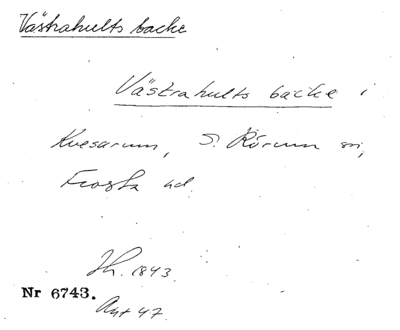 Västrahults backe
Västrahults backe i
Kvesarum, S. Rörum sn,
Frosta hd.
Jh. 1843.
Nr 6743.
Ant 47